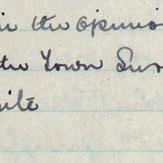 in the opinio
the Town Sur
ite